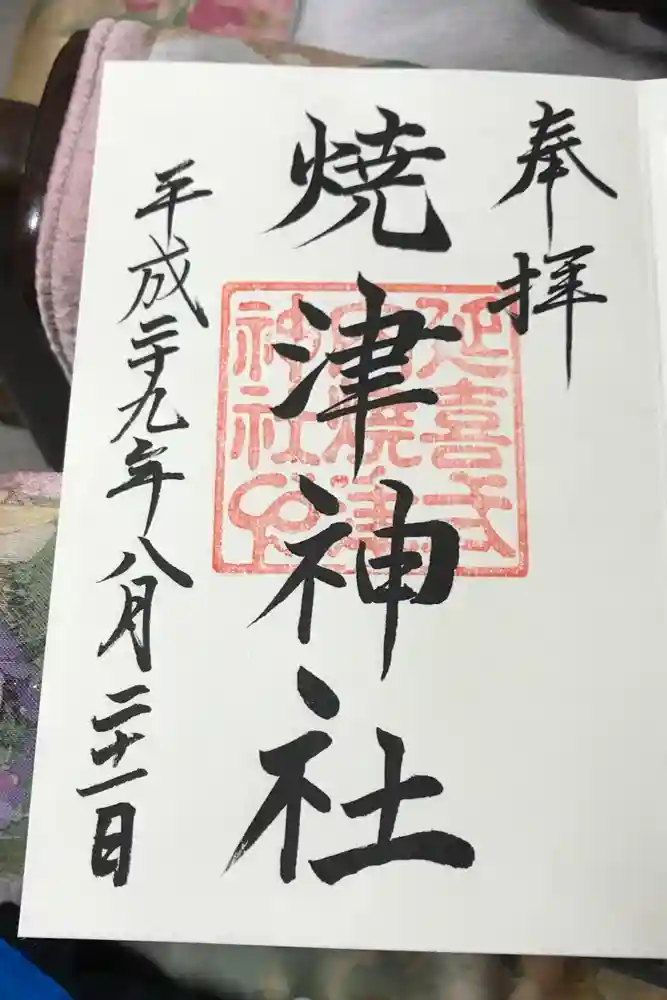 奉拝
焼津神社
平成二十九年八月二十一日
延喜式
焼津
神社